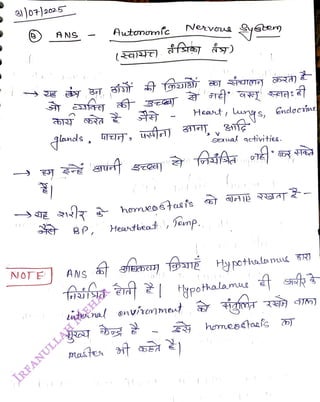 31/07/2025
(B) ANS - Autonomic Nervous System
(स्वायत्त तंत्रिका तंत्र)
→ यह तंत्र उन अंगों की क्रियाओं का संचालन करता है
जो व्यक्ति की इच्छा से नहीं वरन् स्वतः ही
कार्य करते हैं जैसे - Heart, Lungs, Endocrine
glands, पाचन, पसीना आना, आदि
sexual activities.
→ हम इन्हें अपनी इच्छा से नियंत्रित नहीं कर सकते
हैं|
→ यह शरीर के homeostasis को बनाए रखता है -
जैसे BP, Heartbeat, Temp.
NOTE ANS की अधिकतम क्रियाएं Hypothalamus द्वारा
नियंत्रित होती हैं | Hypothalamus ही शरीर के
internal environment को संतुलित रखने वाला
मुख्य केन्द्र है - इसे homeostasis का
master भी कहते हैं|
IRFANULLAH